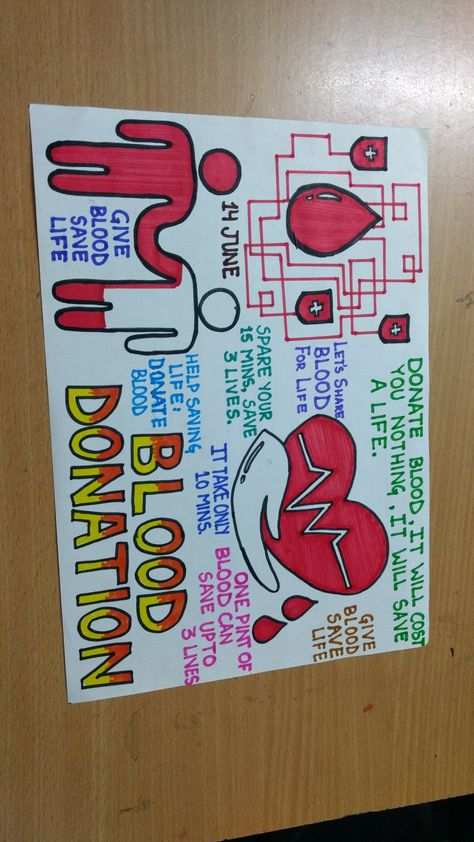 DONATE BLOOD, IT WILL COST
YOU NOTHING, IT WILL SAVE
A LIFE.
GIVE
BLOOD
SAVE
LIFE
LET'S SHARE
BLOOD
FOR LIFE
SPARE YOUR
15 MINS, SAVE
3 LIVES.
14 JUNE
IT TAKE ONLY
10 MINS.
ONE PINT OF
BLOOD CAN
SAVE UPTO
3 LIVES
HELP SAVING
LIFE:
DONATE
BLOOD
GIVE
BLOOD
SAVE
LIFE
BLOOD
DONATION